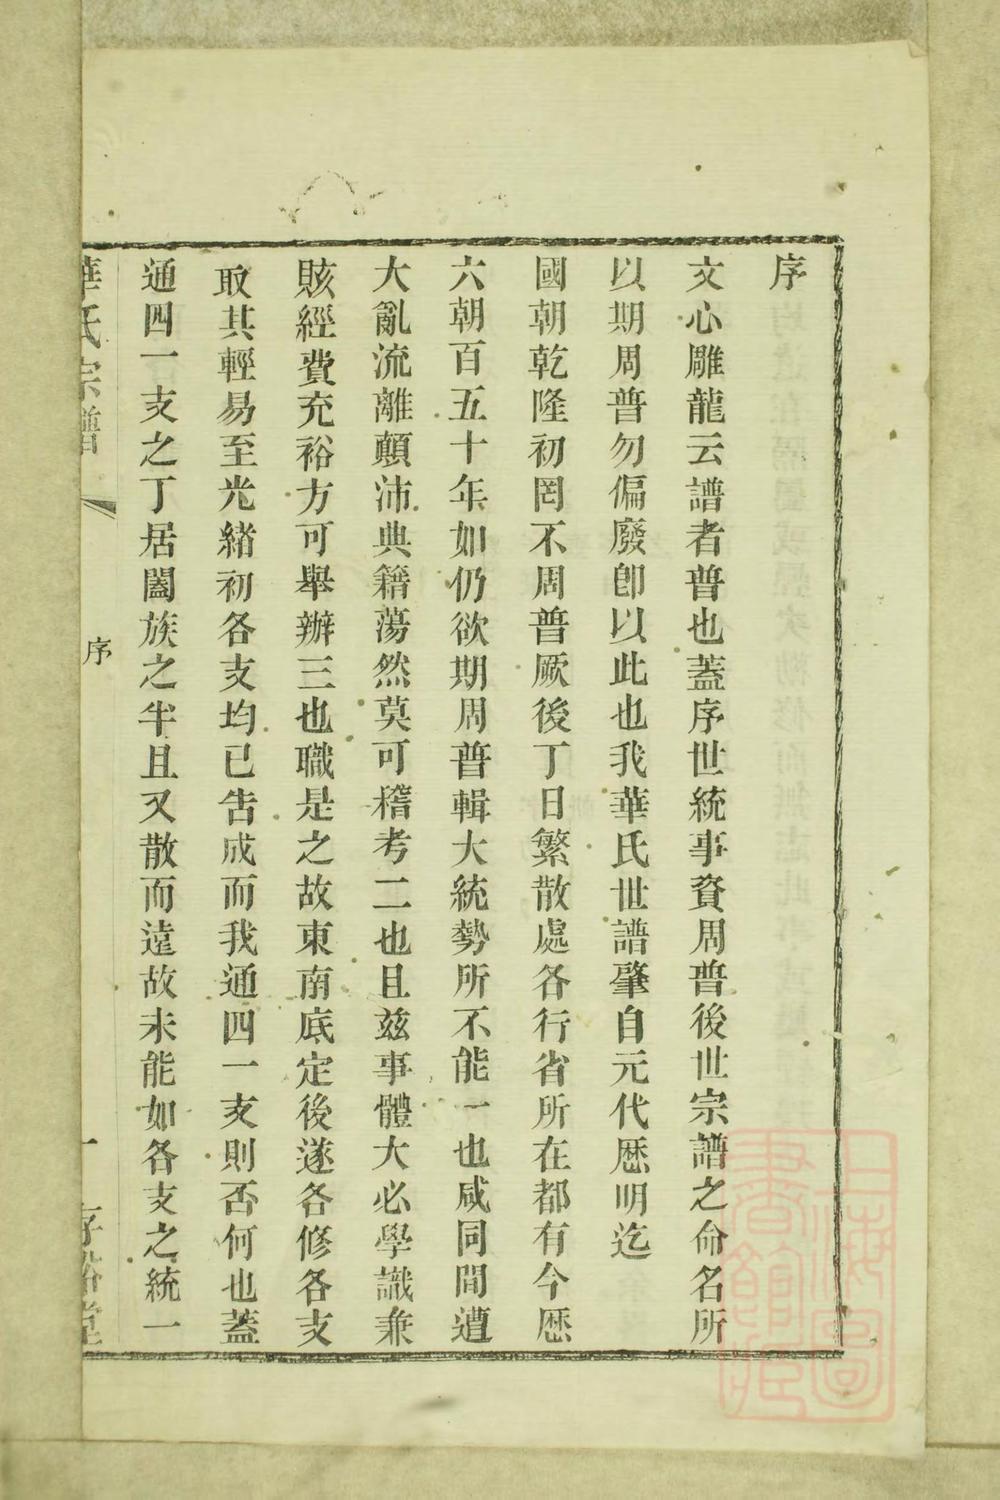 序
文心雕龍云譜者普也蓋序世統事資周普後世宗譜之命名所
以期周普勿偏廢卽以此也我華氏世譜肇自元代歷明迄
國朝乾隆初罔不周普厥後丁日繁散處各行省所在都有今歷
六朝百五十年如仍欲期周普輯大統勢所不能一也咸同間遭
大亂流離顛沛典籍蕩然莫可稽考二也且茲事體大必學識兼
賅經費充裕方可舉辦三也職是之故東南底定後遂各修各支
取其輕易至光緒初各支均已告成而我通四一支則否何也蓋
通四一支之丁居闔族之半且又散而遠故未能如各支之統一
華氏宗譜
序
一
存裕堂
上海圖書館藏